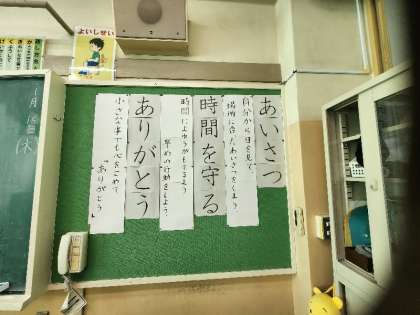 あいさつ
自分から目を見て
場所に合ったあいさつをしよう
時間を守る
時間によゆうがもてるよう
早めの行動をしよう
ありがとう
小さな事でも心をこめて
「ありがとう」
よいしせい